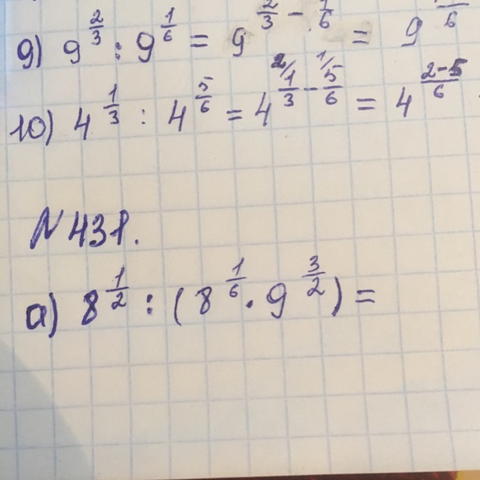 9) 9^{\frac{2}{3}} : 9^{\frac{1}{6}} = 9^{\frac{2}{3} - \frac{1}{6}} = 9
10) 4^{\frac{1}{3}} : 4^{\frac{5}{6}} = 4^{\frac{^{2/}1}{3} - \frac{^{1/}5}{6}} = 4^{\frac{2-5}{6}}
№431.
а) 8^{\frac{1}{2}} : (8^{\frac{1}{6}} · 9^{\frac{3}{2}}) =